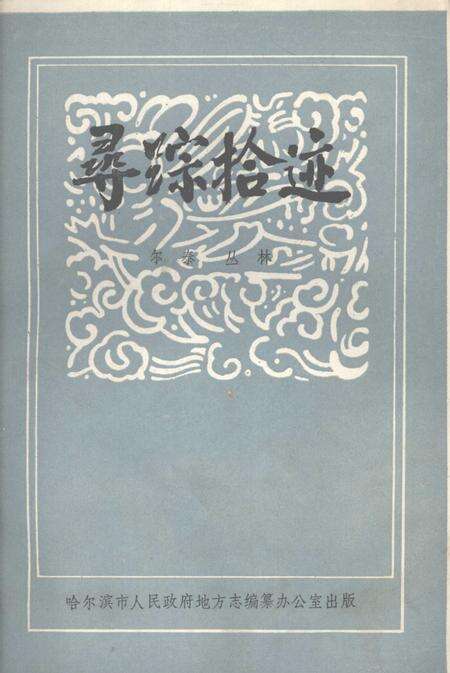 尋踪拾迹
尔泰 丛林
哈尔滨市人民政府地方志编纂办公室出版